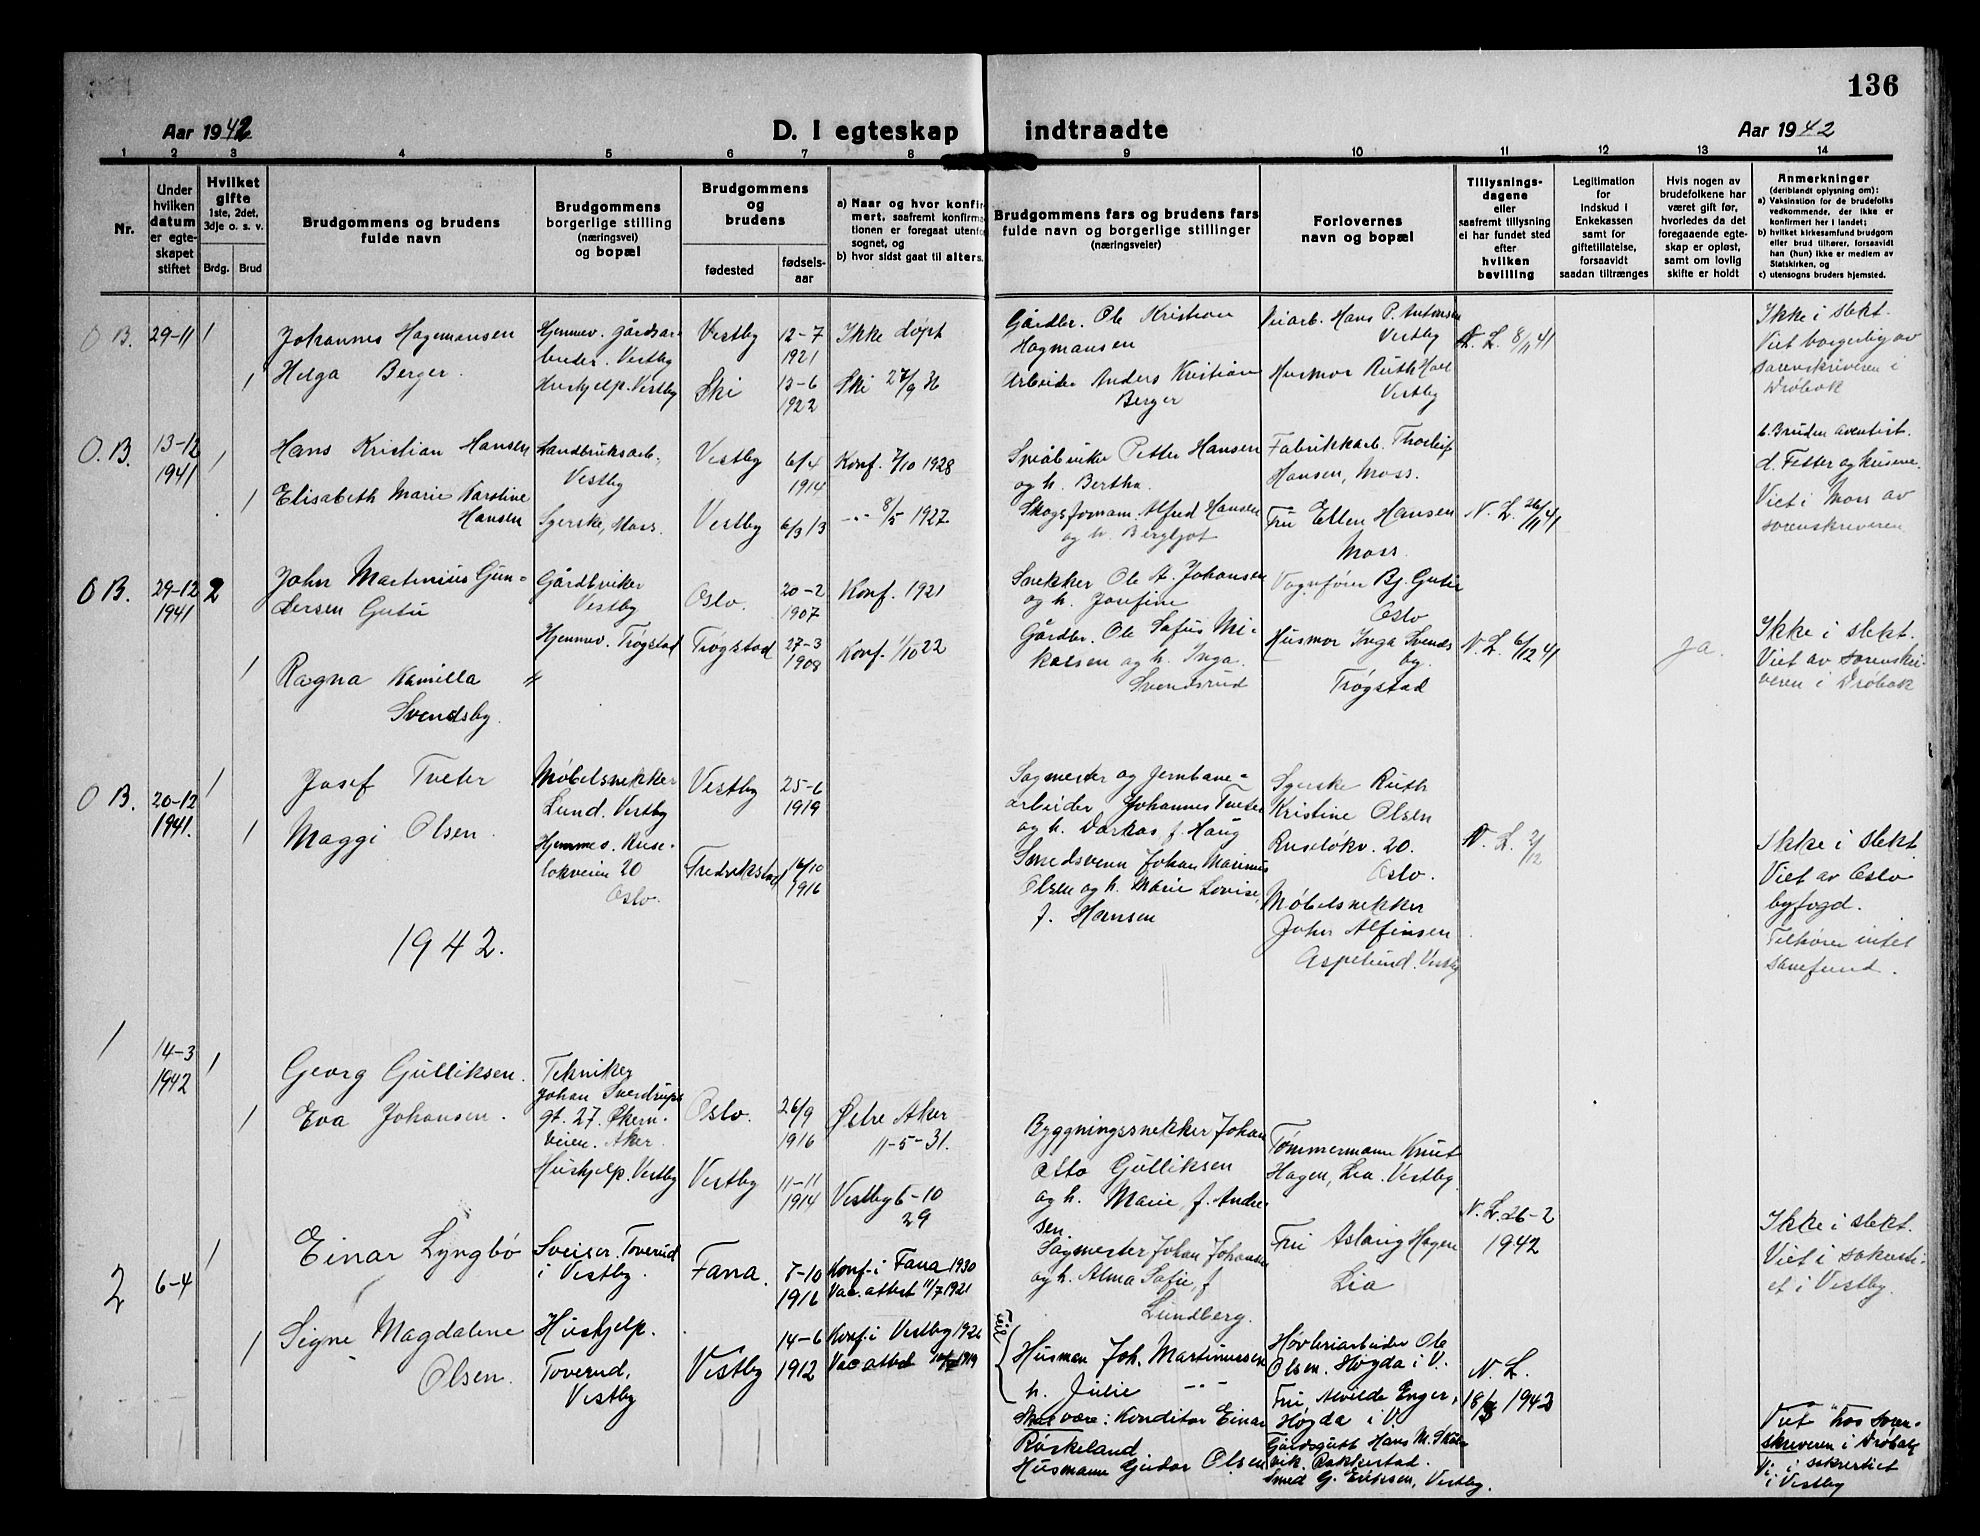 136
Aar 1942
D. I egteskap
indtraadte
Aar 1942
1 2 3 4 5 6 7 8 9 10 11 12 13 14
Nr.
Under
hvilken
datum
er egte-
skapet
stiftet
Hvilket
gifte
1ste, 2det,
3dje o. s. v.
Brdg. Brud
Brudgommens og brudens
fulde navn
Brudgommens
borgerlige stilling
(næringsvei)
og bopæl
Brudgommens
og
brudens
fødested
fødsels-
aar
a) Naar og hvor konfir-
mert, saafremt konfirma-
tionen er foregaat utenfor
sognet, og
b) hvor sidst gaat til alters.
Brudgommens fars og brudens fars
fulde navn og borgerlige stillinger
(næringsveier)
Forlovernes
navn og bopæl
Tillysnings-
dagene
eller
saafremt tillysning
ei har fundet sted
efter
hvilken
bevilling
Legitimation
for
Indskud i
Enkekassen
samt for
giftetillatelse,
forsaavidt
saadan tiltrænges
Hvis nogen av
brudefolkene har
været gift før,
hvorledes da det
foregaaende egte-
skap er opløst,
samt om lovlig
skifte er holdt
Anmerkninger
(deriblandt oplysning om):
a) Vaksination for de brudefolks
vedkommende, der ikke er
konfirmert her i landet;
b) hvilket kirkesamfund brudgom
eller brud tilhører, forsaavidt
han (hun) ikke er medlem av
Statskirken, og
c) utensogns bruders hjemsted.
O B. 29-11 1
Johannes Hagemansen
Hjemmev. gårdsar-
beider. Vestby
Vestby
12-7
1921
Ikke døpt
Gårdbr. Ole Kristian
Hagmansen
Veiarb. Hans P. Antonsen
Vestby
N. L. 8/11 41
Ikke i slekt.
Viet borgerlig av
sorenskriveren i
Drøbak
1
Helga Berger.
Hushjelp. Vestby
Ski
13-6
1922
Ski 27/9 36
Arbeider Anders Kristian
Berger
Husmor Ruth
Vestby
O. B. 13-12
1941 1
Hans Kristian Hansen
Landbruksarb.
Vestby
Vestby
6/4
1914
Konf. 7/10 1928
Småbruker Petter Hansen
og h. Bertha.
Fabrikkarb. Thorleif
Hansen, Moss.
b. Bruden adventist.
d. Fetter og kusine.
Viet i Moss av
sorenskriveren
1
Elisabeth Marie Karoline
Hansen
Syerske, Moss.
Vestby
6/3 13
-"- 8/5 1927
Skogsformann Alfred Hansen
og h. Bergljot
Fru Ellen Hansen
Moss.
N. L. 26/11 41
O B. 29-12
1941 2
John Martinius Gun-
dersen Gutu
Gårdbruker
Vestby
Oslo.
20-2
1907
Konf. 1921
Snekker Ole A. Johansen
og h. Josefine
Vognfører Bj. Gutu
Oslo
1
Ragna Kamilla
Svendsby.
Hjemmev. Trøgstad
Trøgstad
27-3
1908
Konf. 1/10 22
Gårdbr. Ole Sofus Mi-
kalsen og h. Inga.
Svendsrud
Husmor Inga Svends
by.
Trøgstad
N. L. 6/12 41
ja.
Ikke i slekt.
Viet av sorenskri-
veren i Drøbak
O B. 20-12
1941. 1
Josef Tveter
Møbelsnekker
Lund. Vestby
Vestby
25-6
1919
Sagmester og jernbane-
arbeider Johannes Tveter
og h. Dorkas f. Haug
Syerske Ruth
Kristine Olsen
Ruseløkv. 20.
Oslo.
1
Maggi Olsen.
Hjemmev. Ruse-
løkveien 20
Oslo.
Fredrikstad
16/10
1916
Smedsvenn Johan Marinius
Olsen og h. Marie Lovise,
f. Hansen
Møbelsnekker
John Alfinsen
Aspelund. Vestby
N. L. 2/12
Ikke i slekt
Viet av Oslo
byfogd.
Tilhører intet
samfund.
1942.
1 14-3
1942 1
Georg Gulliksen.
Tekniker
Johan Sverdrups
gt. 27. Økern-
veien. Aker.
Oslo.
26/9
1916
Østre Aker
11-5-31.
Byggningssnekker Johan
Otto Gulliksen
og h. Marie, f. Andre
sen
Tømmermann Knut
Hagen, Lia. Vestby.
1
Eva Johansen.
Hushjelp. Vestby
Vestby
11-11
1914
Vestby 6-10
29
Sagmester Johan Johansen
og h. Alma Sofie, f
Lundberg.
Fru Aslaug Hagen
Lia
N. L. 26-2
1942
Ikke i slekt.
Viet i sakristi-
et i Vestby.
2 6-4 1
Einar Lyngbø
Sveiser. Toverud
i Vestby.
Fana.
7-10
1916
Konf. i Fana 1930
Vac. attest 11/7 1921
Husman Joh. Martinussen
h. Julie -"-
Høvleriarbeider Ole
Olsen. Høgda i V.
Fru Alvilde Enger,
Høgda i V.
1
Signe Magdalene
Olsen.
Hushjelp.
Toverud,
Vestby
Vestby
14-6
1912
Konf. i Vestby
Vac attest
Skal være: Konditor Einar
Røskeland
Husmann Gudor Olsen
Gårdsgutt Hans M.
Rakkestad.
Smed G. Eriksen, Vestby.
N. L.
18/3 1942
Viet hos soren-
skriveren i Drøbak
Vi. i sakristiet
i Vestby